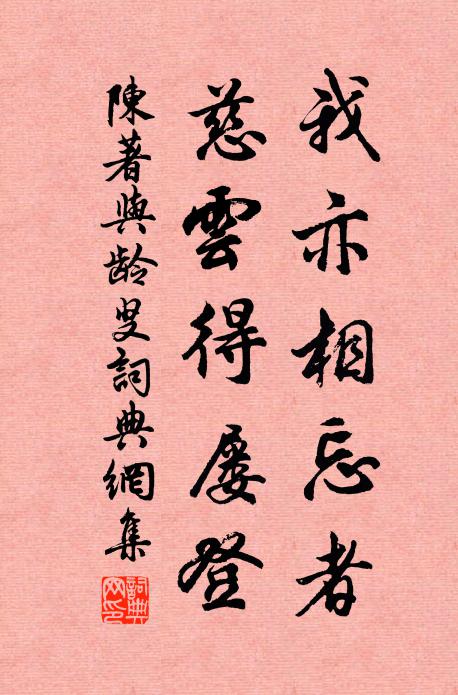 我亦相忘者
慈雲得屡登
陳著與龄叟詞典網集
詞典網印